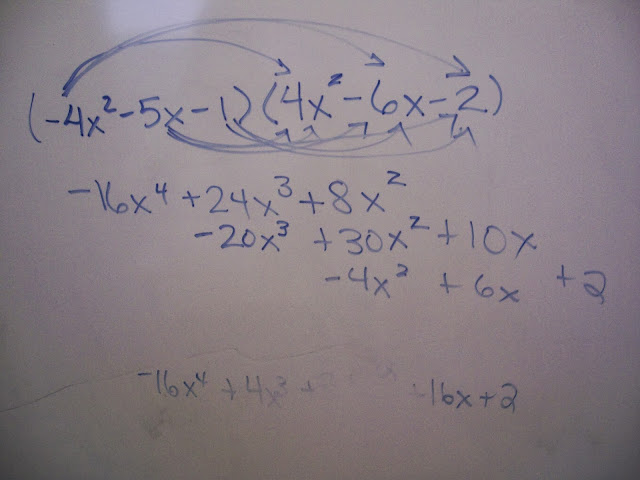 (-4x²-5x-1)(4x²-6x-2)
-16x⁴+24x³+8x²
-20x³+30x²+10x
-4x²+6x+2
-16x⁴+4x³+ +16x+2